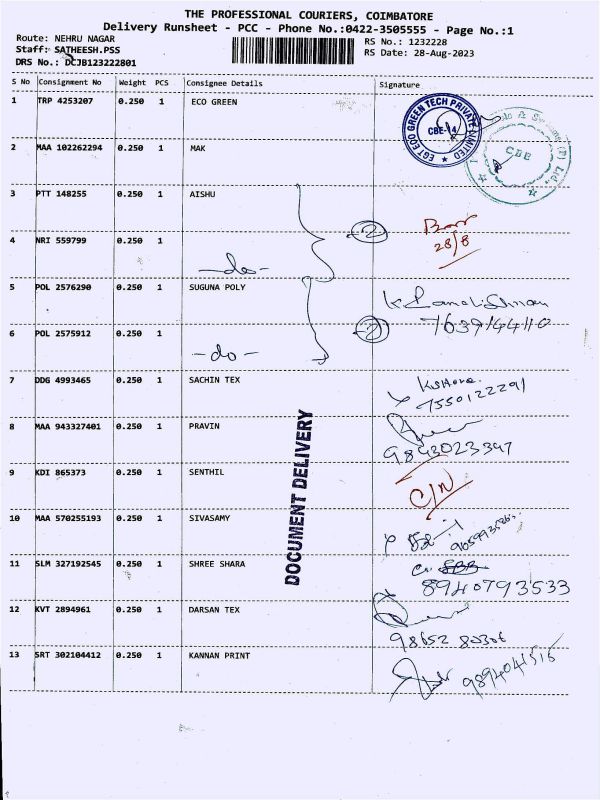 THE PROFESSIONAL COURIERS, COIMBATORE
Delivery Runsheet - PCC - Phone No.:0422-3505555 - Page No.:1
Route: NEHRU NAGAR
RS No.: 1232228
Staff: SATHEESH.PSS
RS Date: 28-Aug-2023
DRS No.: DCJB123222801
S No Consignment No Weight PCS Consignee Details Signature
1 TRP 4253207 0.250 1 ECO GREEN
EGT ECO GREEN TECH PRIVATE LIMITED
CBE-14
CBE
2 MAA 102262294 0.250 1 MAK
3 PTT 148255 0.250 1 AISHU
2
28/8
4 NRI 559799 0.250 1
-do-
5 POL 2576290 0.250 1 SUGUNA POLY
7639144110
2
6 POL 2575912 0.250 1
-do-
7 DDG 4993465 0.250 1 SACHIN TEX
7550122291
8 MAA 943327401 0.250 1 PRAVIN
9843023347
9 KDI 865373 0.250 1 SENTHIL
C/N
10 MAA 570255193 0.250 1 SIVASAMY
11 SLM 327192545 0.250 1 SHREE SHARA
8940793533
12 KVT 2894961 0.250 1 DARSAN TEX
98652 80306
13 SRT 302104412 0.250 1 KANNAN PRINT
9894041515
DOCUMENT DELIVERY